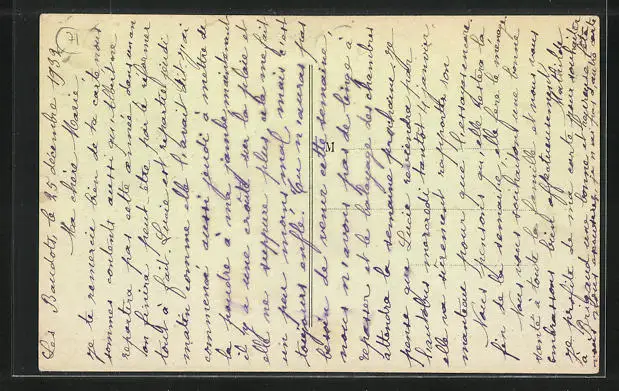 Les Baudots, le 25 décembre 1932
Ma chère Marie
je te remercie bien de ta carte nous
sommes contents aussi qu'elle ne
reportera pas cette année dans un an
on finira peut être par le réformer
tout à fait. Lucie est repartie jeudi
matin comme elle l'avait dit, j'ai
commencé aussi jeudi à mettre de
la poudre à ma jambe maintenant
il y a une croûte sur la plaie et
elle ne suppure plus, cela me fait
un peu moins mal, mais c'est
toujours enflé. Tu n'auras pas
besoin de venir cette semaine,
nous n'avons pas de linge à
repasser et le balayage des chambres
attendra la semaine prochaine, je
pense que Lucie reprendra
l'autobus mercredi tantôt 4 janvier,
elle va sûrement rapporter son
manteau pour que tu l'essayes
Nous pensons qu'elle restera la
fin de la semaine, elle fera le ménage
Nous vous souhaitons une bonne
santé à toute la famille et nous vous
embrassons bien affectueusement
Mathilde
je profite de ma carte pour souhaiter
à Brigand une bonne et heureuse fête